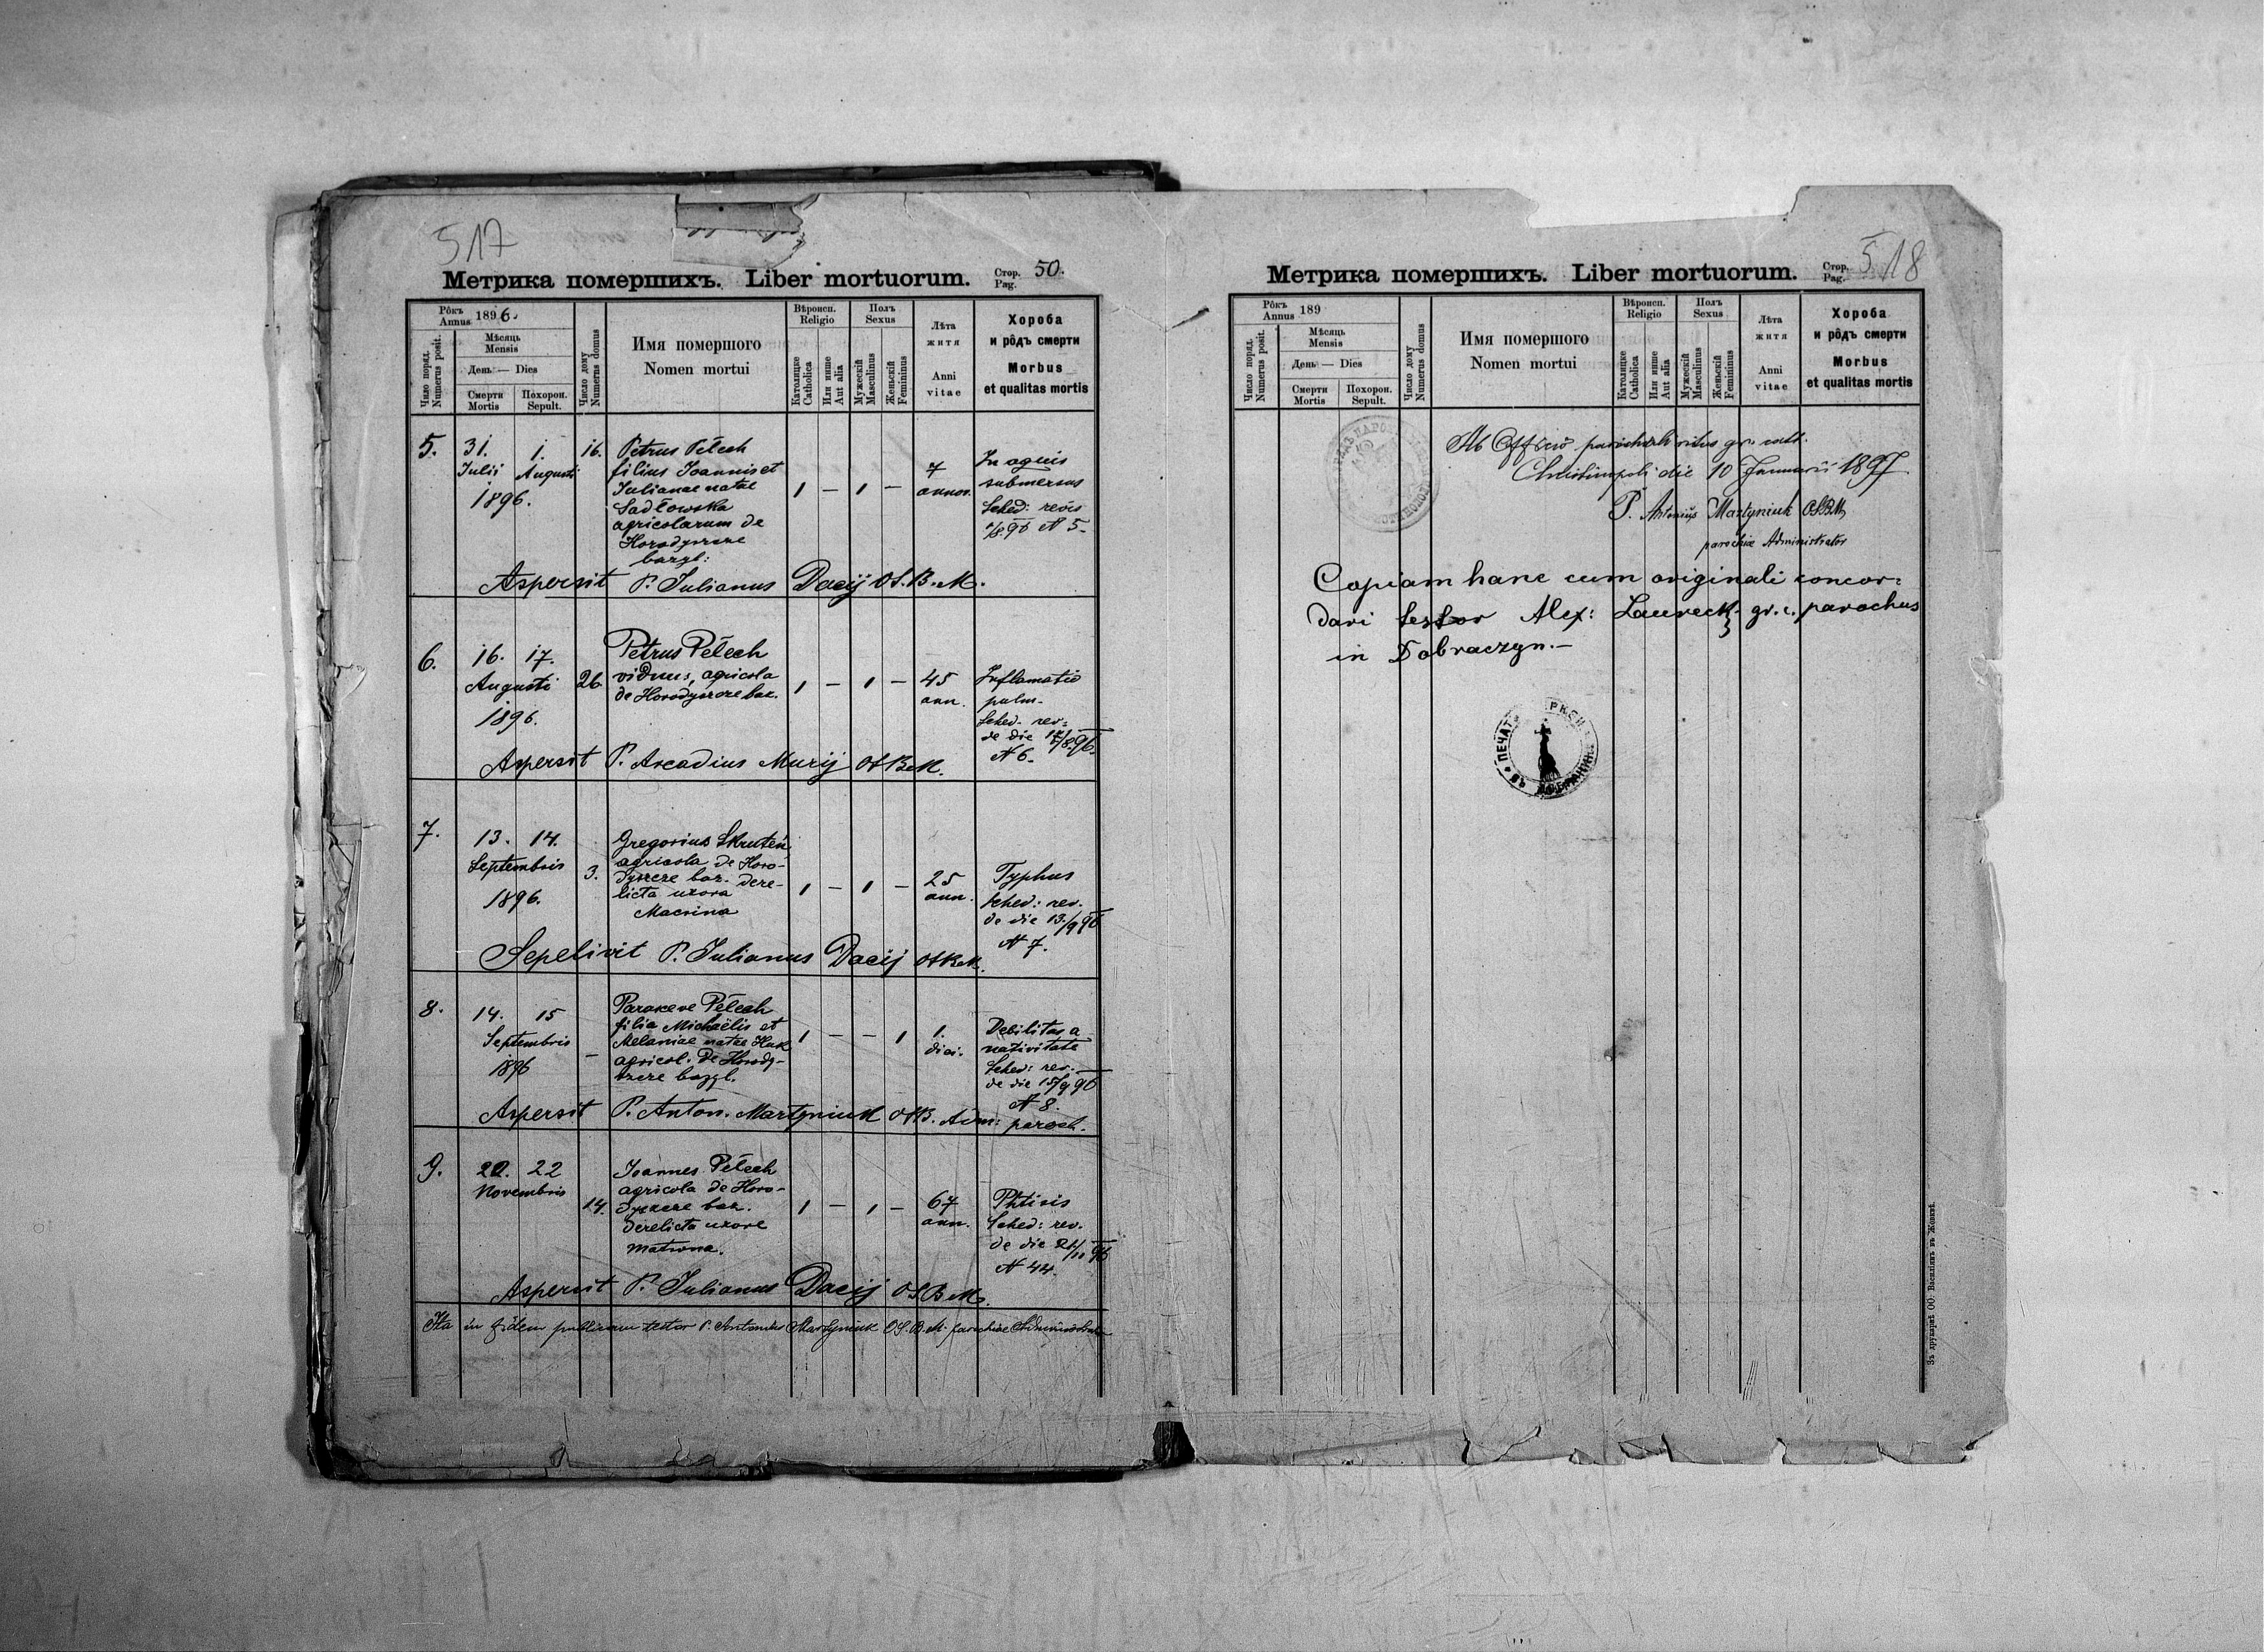 517
Метрика помершихъ. Liber mortuorum. Стор. Pag. 50.
Рôкъ Annus 1896.
Мѣсяць Mensis
День — Dies
Число поряд. Numerus posit.
Смерти Mortis
Похорон. Sepult.
Число дому Numerus domus
Имя помершого
Nomen mortui
Вѣроисп. Religio
Католицке Catholica
Или инше Aut alia
Полъ Sexus
Мужескій Masculinus
Женьскій Femininus
Лѣта житя
Anni vitae
Хороба и рôдъ смерти
Morbus et qualitas mortis
5. 31. 1. 16. Petrus Pełech
Julii Augusti filius Joannis et 7 In aquis
1896. Julianae natae 1 — 1 — annor. submersus
Sadłowska Sched: revis
agricolarum de N 5
Horodyszcze
bazyl:
Aspersit P. Julianus Dacij O.S.B.M.
6. 16. 17. Petrus Pełech
Augusti 26. viduus, agricola 1 — 1 — 45 Inflamatio
1896. de Horodyszcze baz. ann. pulm.
Sched. rev.
de die 17/8 96.
N 6.
Aspersit P. Arcadius Muryj OSBM.
7. 13. 14. Gregorius Skruteń
Septembris 3. agricola de Horo-
1896. dyszcze baz. dere- 1 — 1 — 25 Typhus
licta uxora ann. Sched: rev.
Macrina de die 13./9 96
N 7.
Sepelivit P. Julianus Dacij OSBM.
8. 14. 15 Parasceve Pełech
Septembris — filia Michaëlis et 1 — — 1 1. Debilitas a
1896 Melaniae natae Huk diei. nativitate
agricol. de Horody- Sched: rev.
szcze bazyl. de die 15/9 96
N 8.
Aspersit P. Anton. Martyniuk OSB. Adm: paroch.
9. 20. 22 Joannes Pełech
Novembris 14. agricola de Horo-
dyszcze baz. 1 — 1 — 67 Phtisis
derelicta uxore ann. Sched: rev.
Matrona. de die 21/11 96
N 44.
Aspersit P. Julianus Dacij OSBM.
Ita in fidem publicam testor P. Antonius Martyniuk O.S.B.M. parochiae Administrator
518
Метрика помершихъ. Liber mortuorum. Стор. Pag.
Рôкъ Annus 189
Мѣсяць Mensis
День — Dies
Число поряд. Numerus posit.
Смерти Mortis
Похорон. Sepult.
Число дому Numerus domus
Имя помершого
Nomen mortui
Вѣроисп. Religio
Католицке Catholica
Или инше Aut alia
Полъ Sexus
Мужескій Masculinus
Женьскій Femininus
Лѣта житя
Anni vitae
Хороба и рôдъ смерти
Morbus et qualitas mortis
Ab Officio parochiali ritus gr. cath.
Christinopoli die 10 Januarii 1897
P. Antonius Martyniuk OSBM
parochiae Administrator
Copiam hanc cum originali concor=
dari testor Alex: Laureck gr. c. parochus
in Dobraczyn.—
ПЕЧАТЬ
Зъ друкарнѣ ОО. Василіянъ въ Жовквѣ.